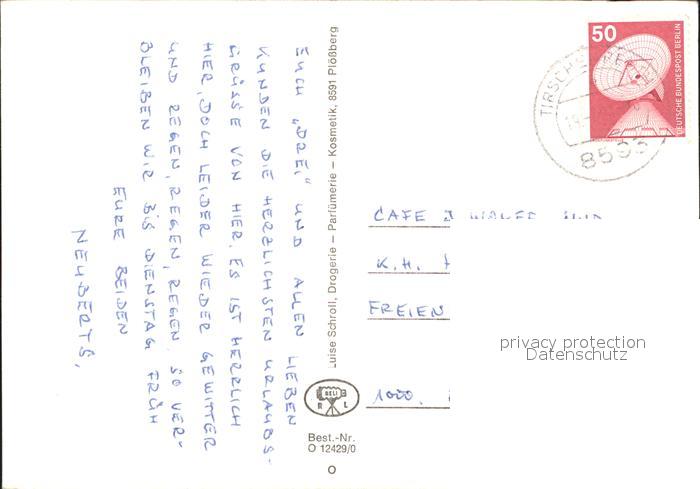 EUCH „DREI" UND ALLEN LIEBEN
KUNDEN DIE HERZLICHSTEN URLAUBS-
GRÜSSE VON HIER. ES IST HERRLICH
HIER, DOCH LEIDER WIEDER GEWITTER
UND REGEN, REGEN, REGEN. SO VER-
BLEIBEN WIR BIS DIENSTAG FRÜH
EURE BEIDEN
NEUBERTS,
Luise Schroll, Drogerie – Parfümerie – Kosmetik, 8591 Plößberg
BELI
R L
Best.-Nr.
O 12429/0
O
50
DEUTSCHE BUNDESPOST BERLIN
8593
CAFE
K.H.
FREIEN
1000.
privacy protection
Datenschutz